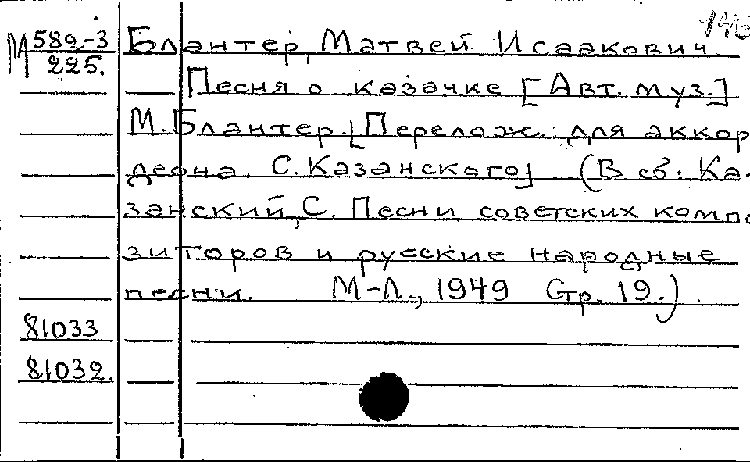 М 589-3 Блантер, Матвей Исаакович.
225.
Песня о казачке [Авт. муз.]
М. Блантер. [Перелож. для аккор
деона С. Казанского] (В сб. Ка-
занский, С. Песни советских компо
зиторов и русские народные
песни. М-Л., 1949 Стр. 19.)
81033
81032.